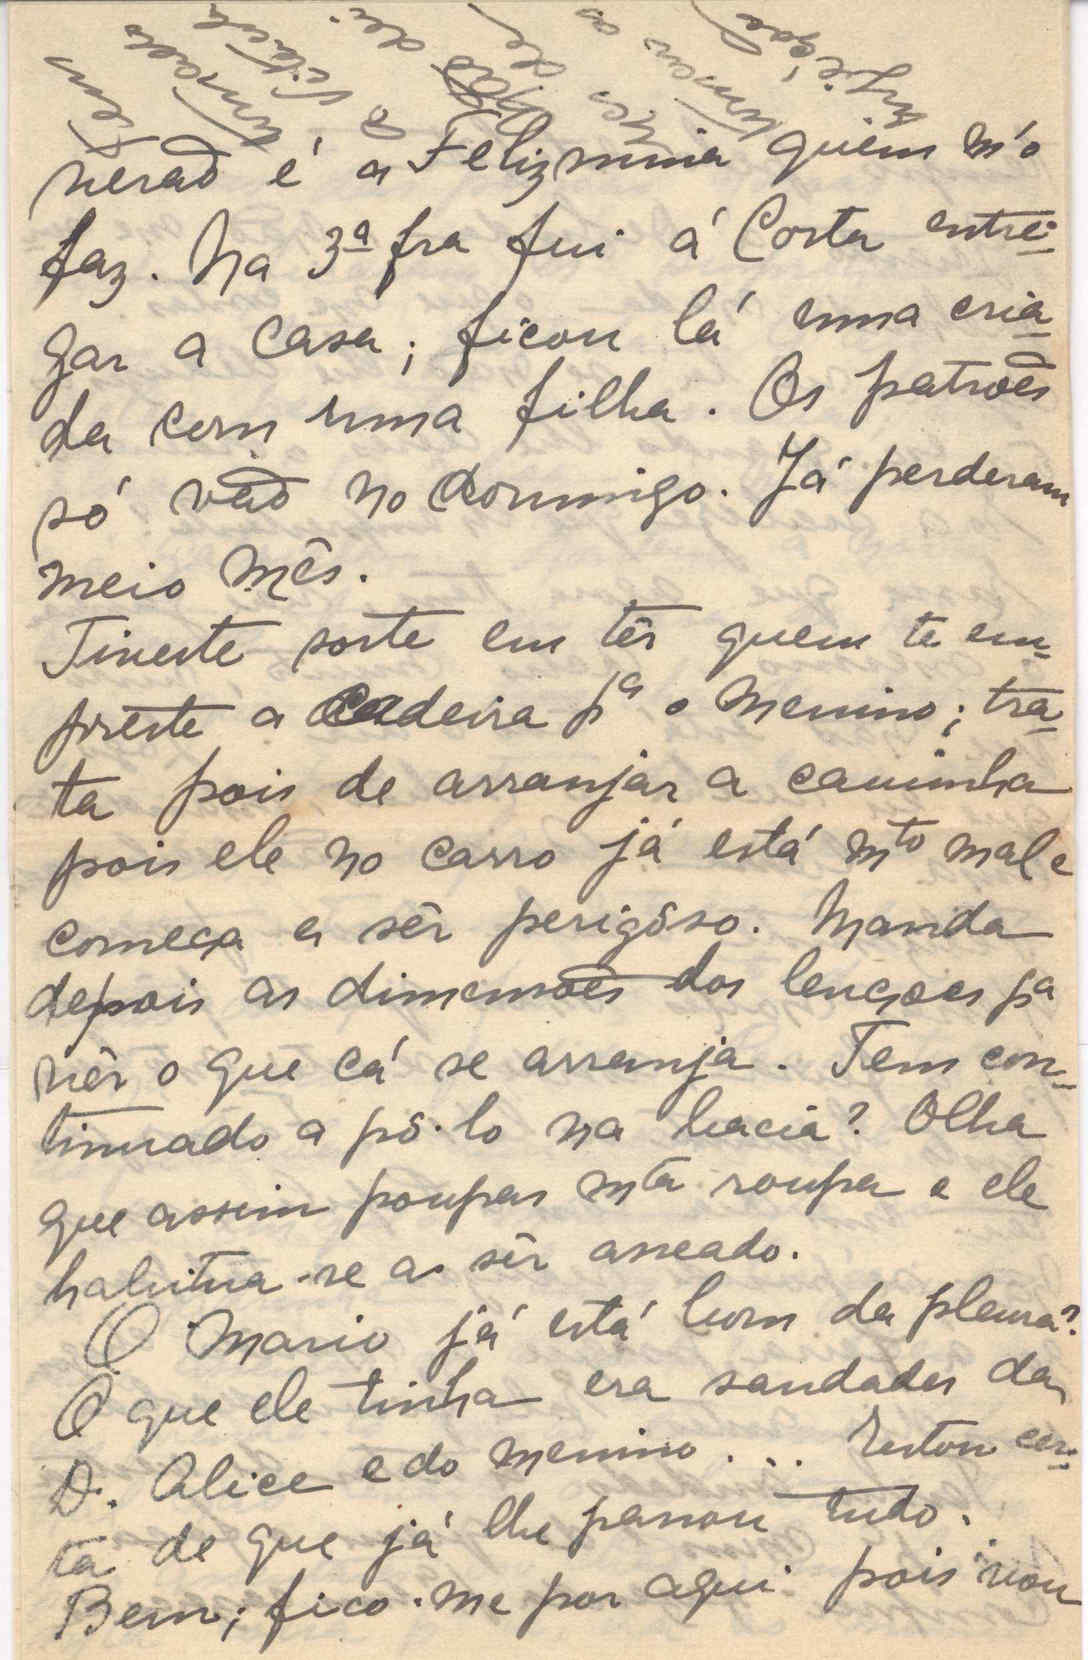 verão é a Felizmina quem m'o
faz. Na 3ª fra fui á Costa entre-
gar a casa; ficou lá uma cria-
da com uma filha. Os patrões
só vão no domingo. Já perderam
meio mês.
Tiveste sorte em têr quem te em-
preste a cadeira pª o menino; tra-
ta pois de arranjar a caminha
pois ele no carro já está mto mal e
começa a sêr perigôso. Manda
depois as dimensões dos lençoes pª
vêr o que cá se arranja. Tem con-
tinuado a pô-lo na bacia? Olha
que assim poupas mta roupa e ele
habitua-se a sêr asseado.
O Mario já está bom da pleura?
O que ele tinha era saudades da
D. Alice e do menino... Estou cer-
ta de que já lhe passou tudo.
Bem; fico-me por aqui pois vou